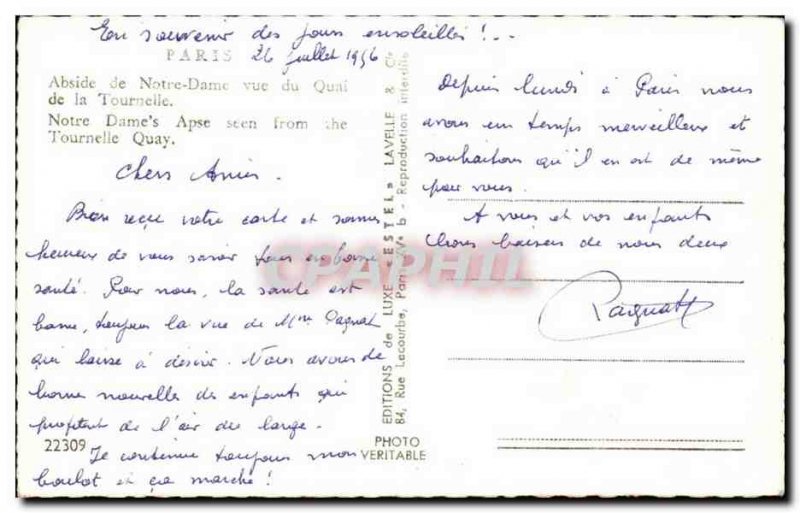 En souvenir des jours ensoleillés !..
PARIS 26 juillet 1956
Abside de Notre-Dame vue du Quai
de la Tournelle.
Notre Dame's Apse seen from the
Tournelle Quay.
Chers Amis.
Bien reçu votre carte et sommes
heureux de vous savoir tous en bonne
santé. Pour nous, la santé est
bonne, toujours la vue de Mme Pagnat
qui laisse à désirer. Nous avons de
bonnes nouvelles des enfants qui
profitent de l'air du large.
Je continue toujours mon
boulot et ça marche !
22309
PHOTO
VERITABLE
EDITIONS de LUXE "ESTEL" LAVELLE & Cie
84, Rue Lecourbe, Paris XVe b - Reproduction interdite
Depuis lundi à Paris nous
avons un temps merveilleux et
souhaitons qu'il en est de même
pour vous.
A vous et vos enfants
bons baisers de nous deux
Pagnat
CPAPHIL